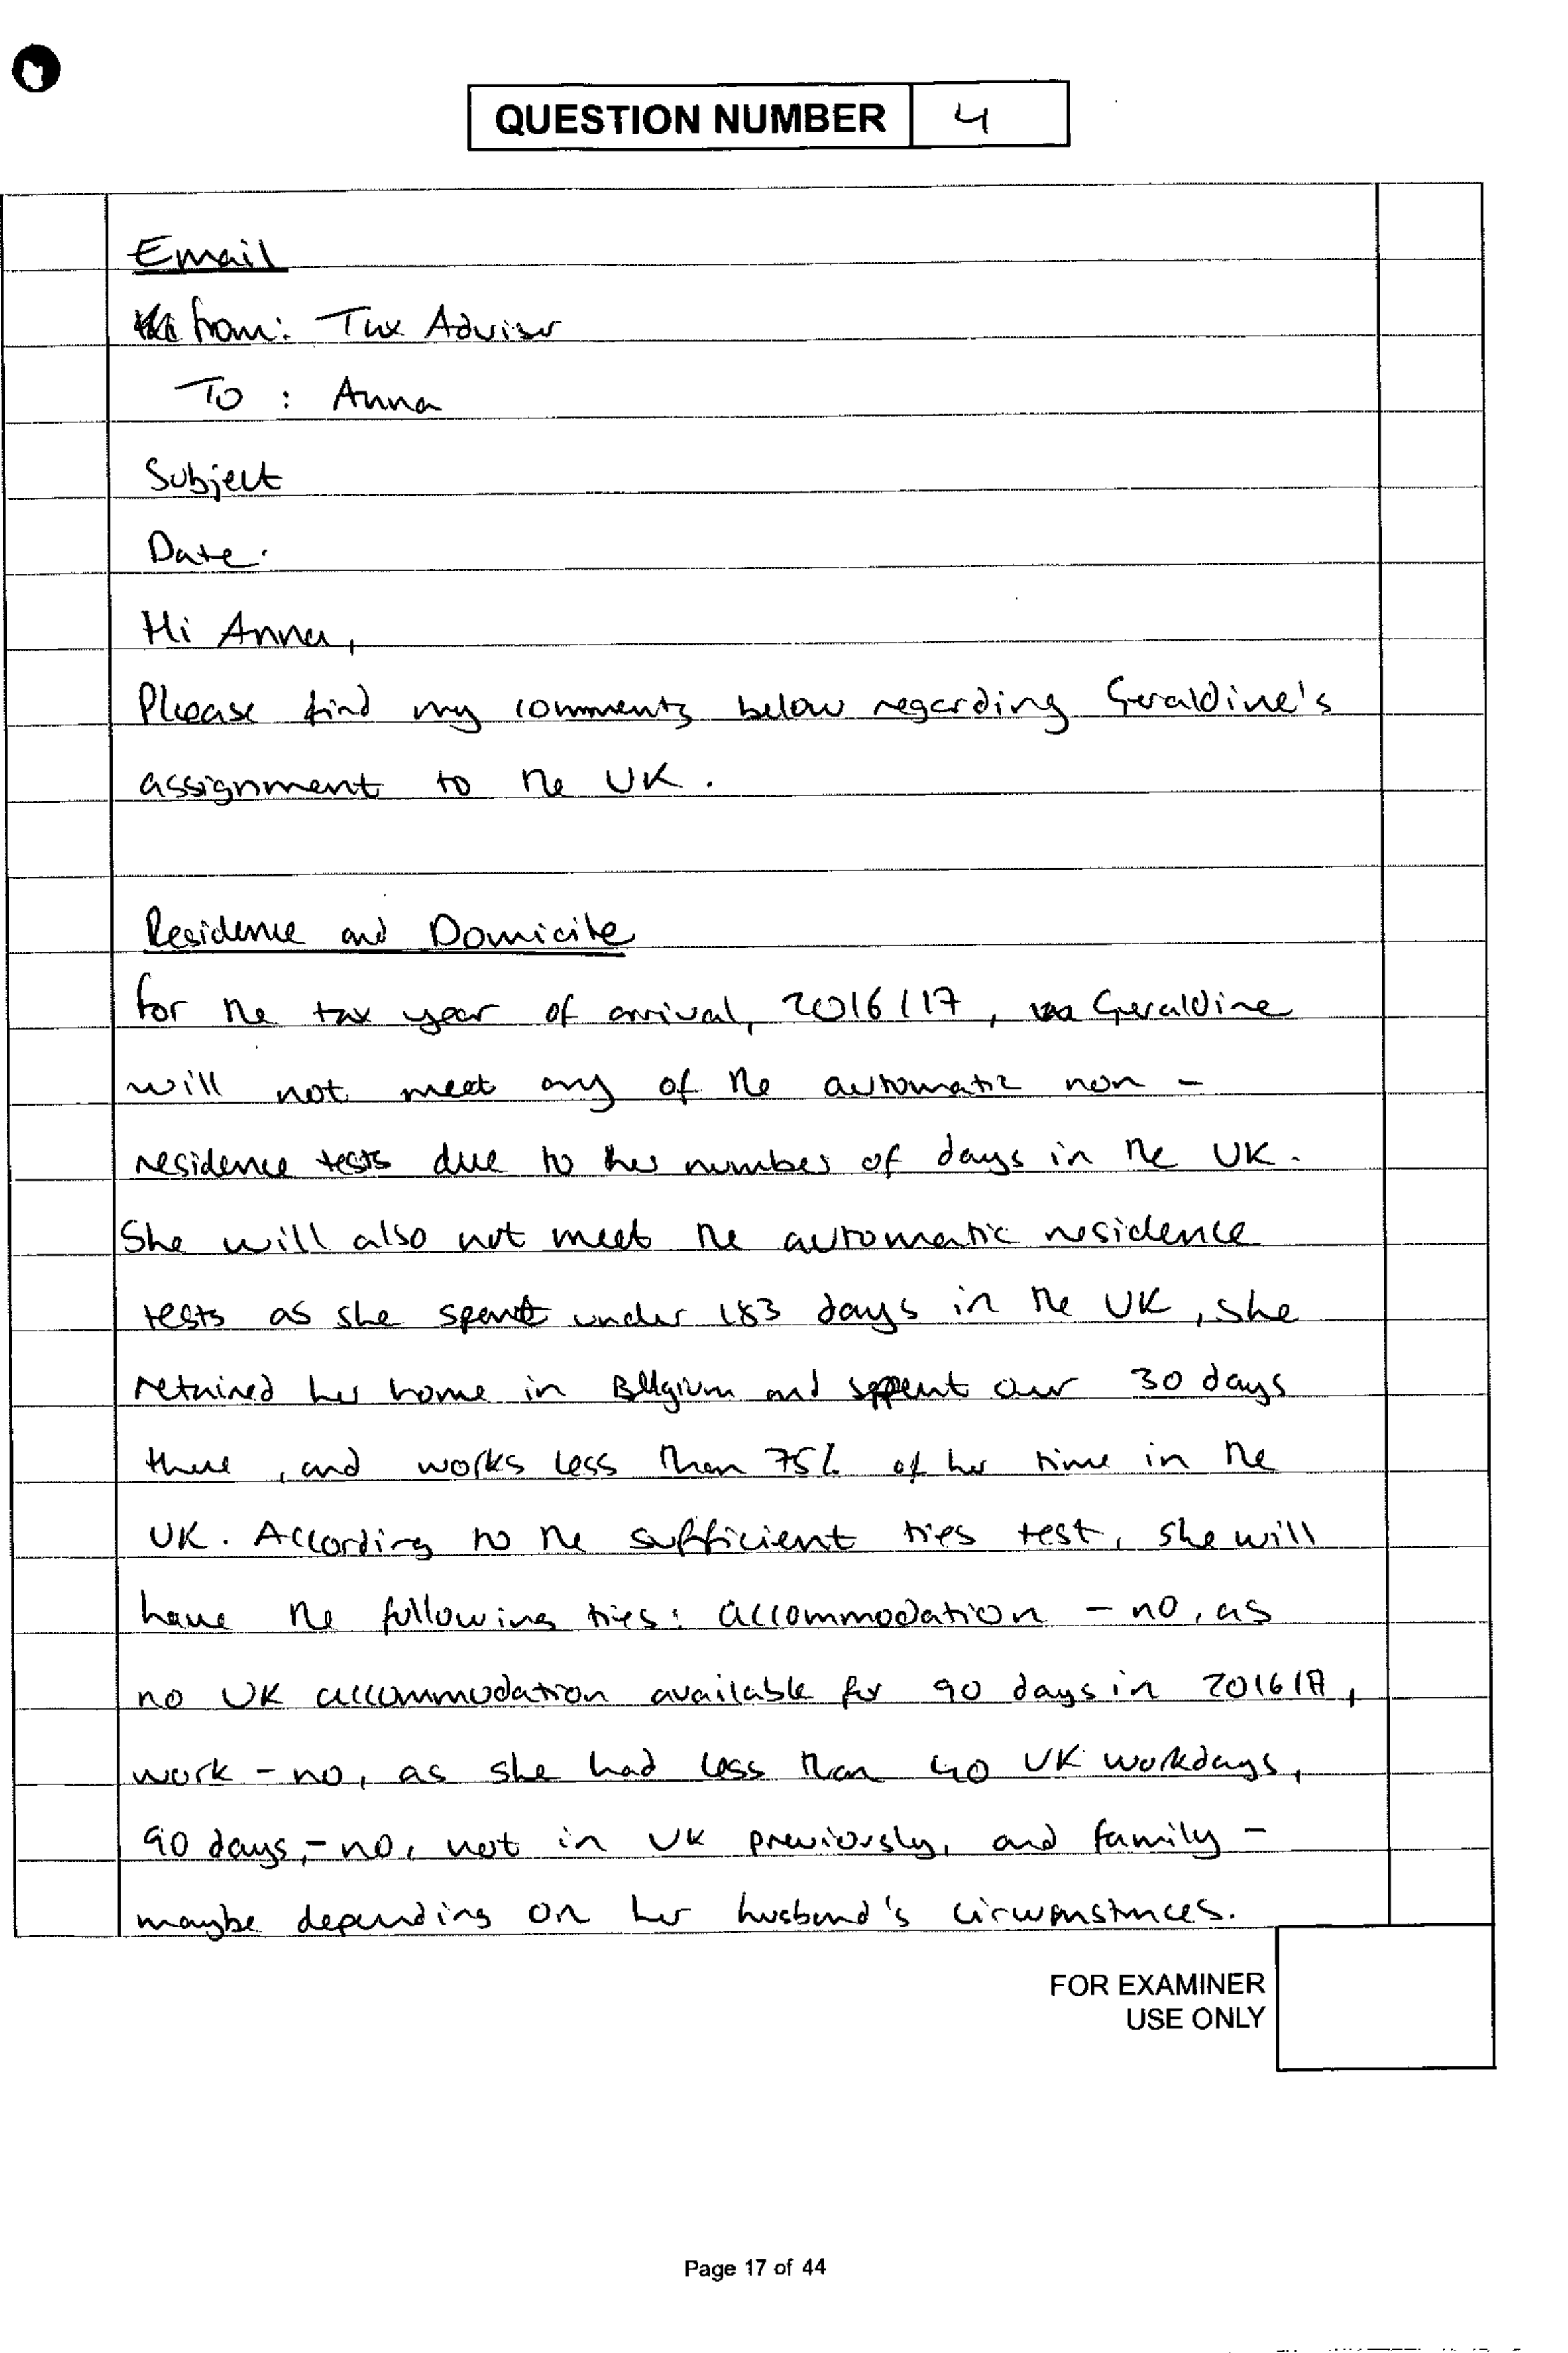 QUESTION NUMBER 4
Email
From: Tax Adviser
To : Anna
Subject
Date.
Hi Anna,
Please find my comments below regarding Geraldine's
assignment to the UK.
Residence and Domicile
For the tax year of arrival, 2016/17, Geraldine
will not meet any of the automatic non-
residence tests due to her number of days in the UK.
She will also not meet the automatic residence
tests as she spent under 183 days in the UK, she
retained her home in Belgium and spent over 30 days
there, and works less than 75% of her time in the
UK. According to the sufficient ties test, she will
have the following ties: accommodation - no, as
no UK accommodation available for 90 days in 2016/17,
work - no, as she had less than 40 UK workdays,
90 days, - no, not in UK previously, and family -
maybe depending on her husband's circumstances.
FOR EXAMINER
USE ONLY
Page 17 of 44